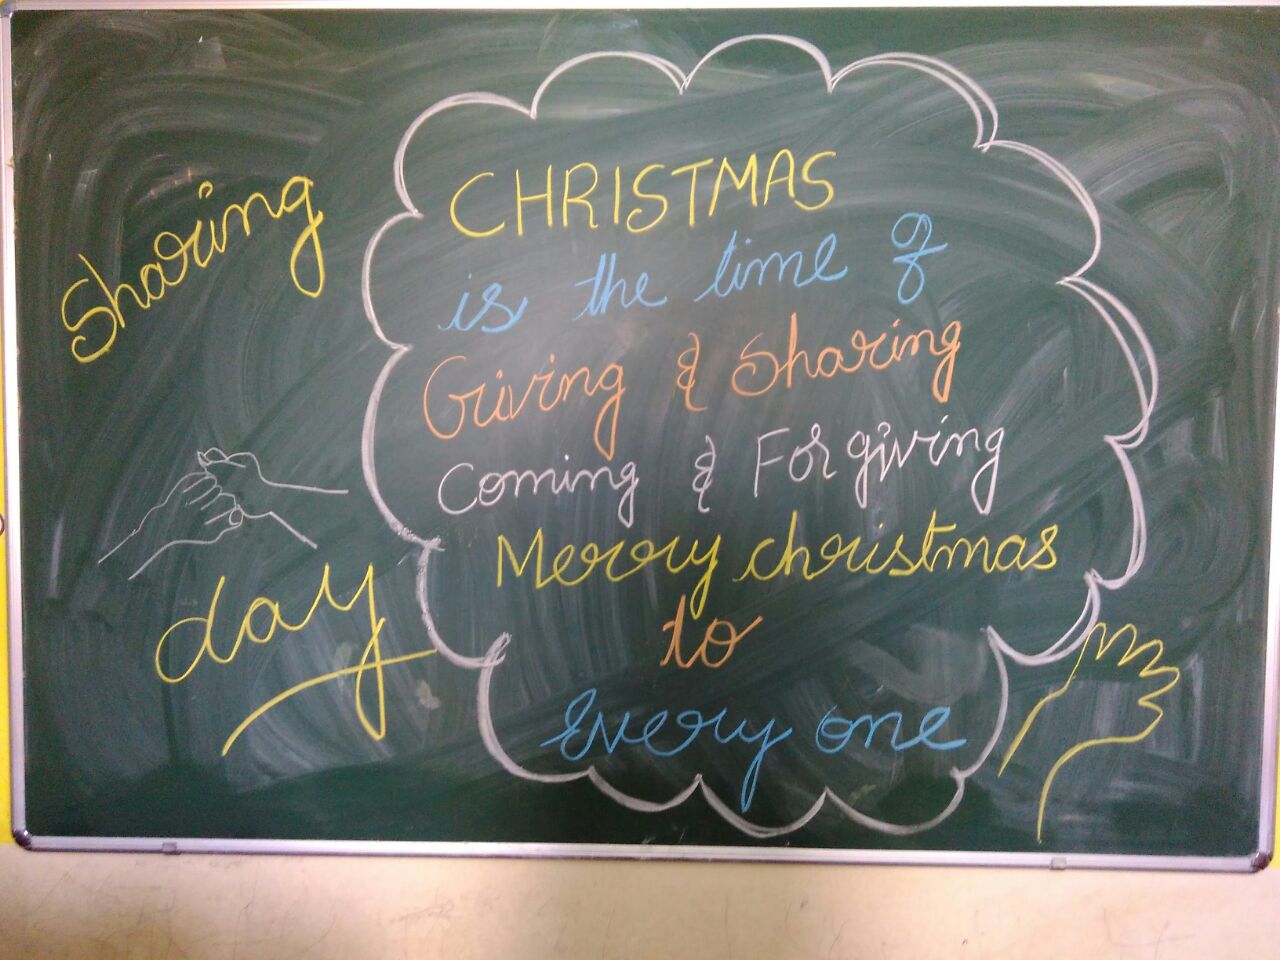 Sharing
day
CHRISTMAS
is the time of
Giving & Sharing
Coming & Forgiving
Merry christmas
to
Every one